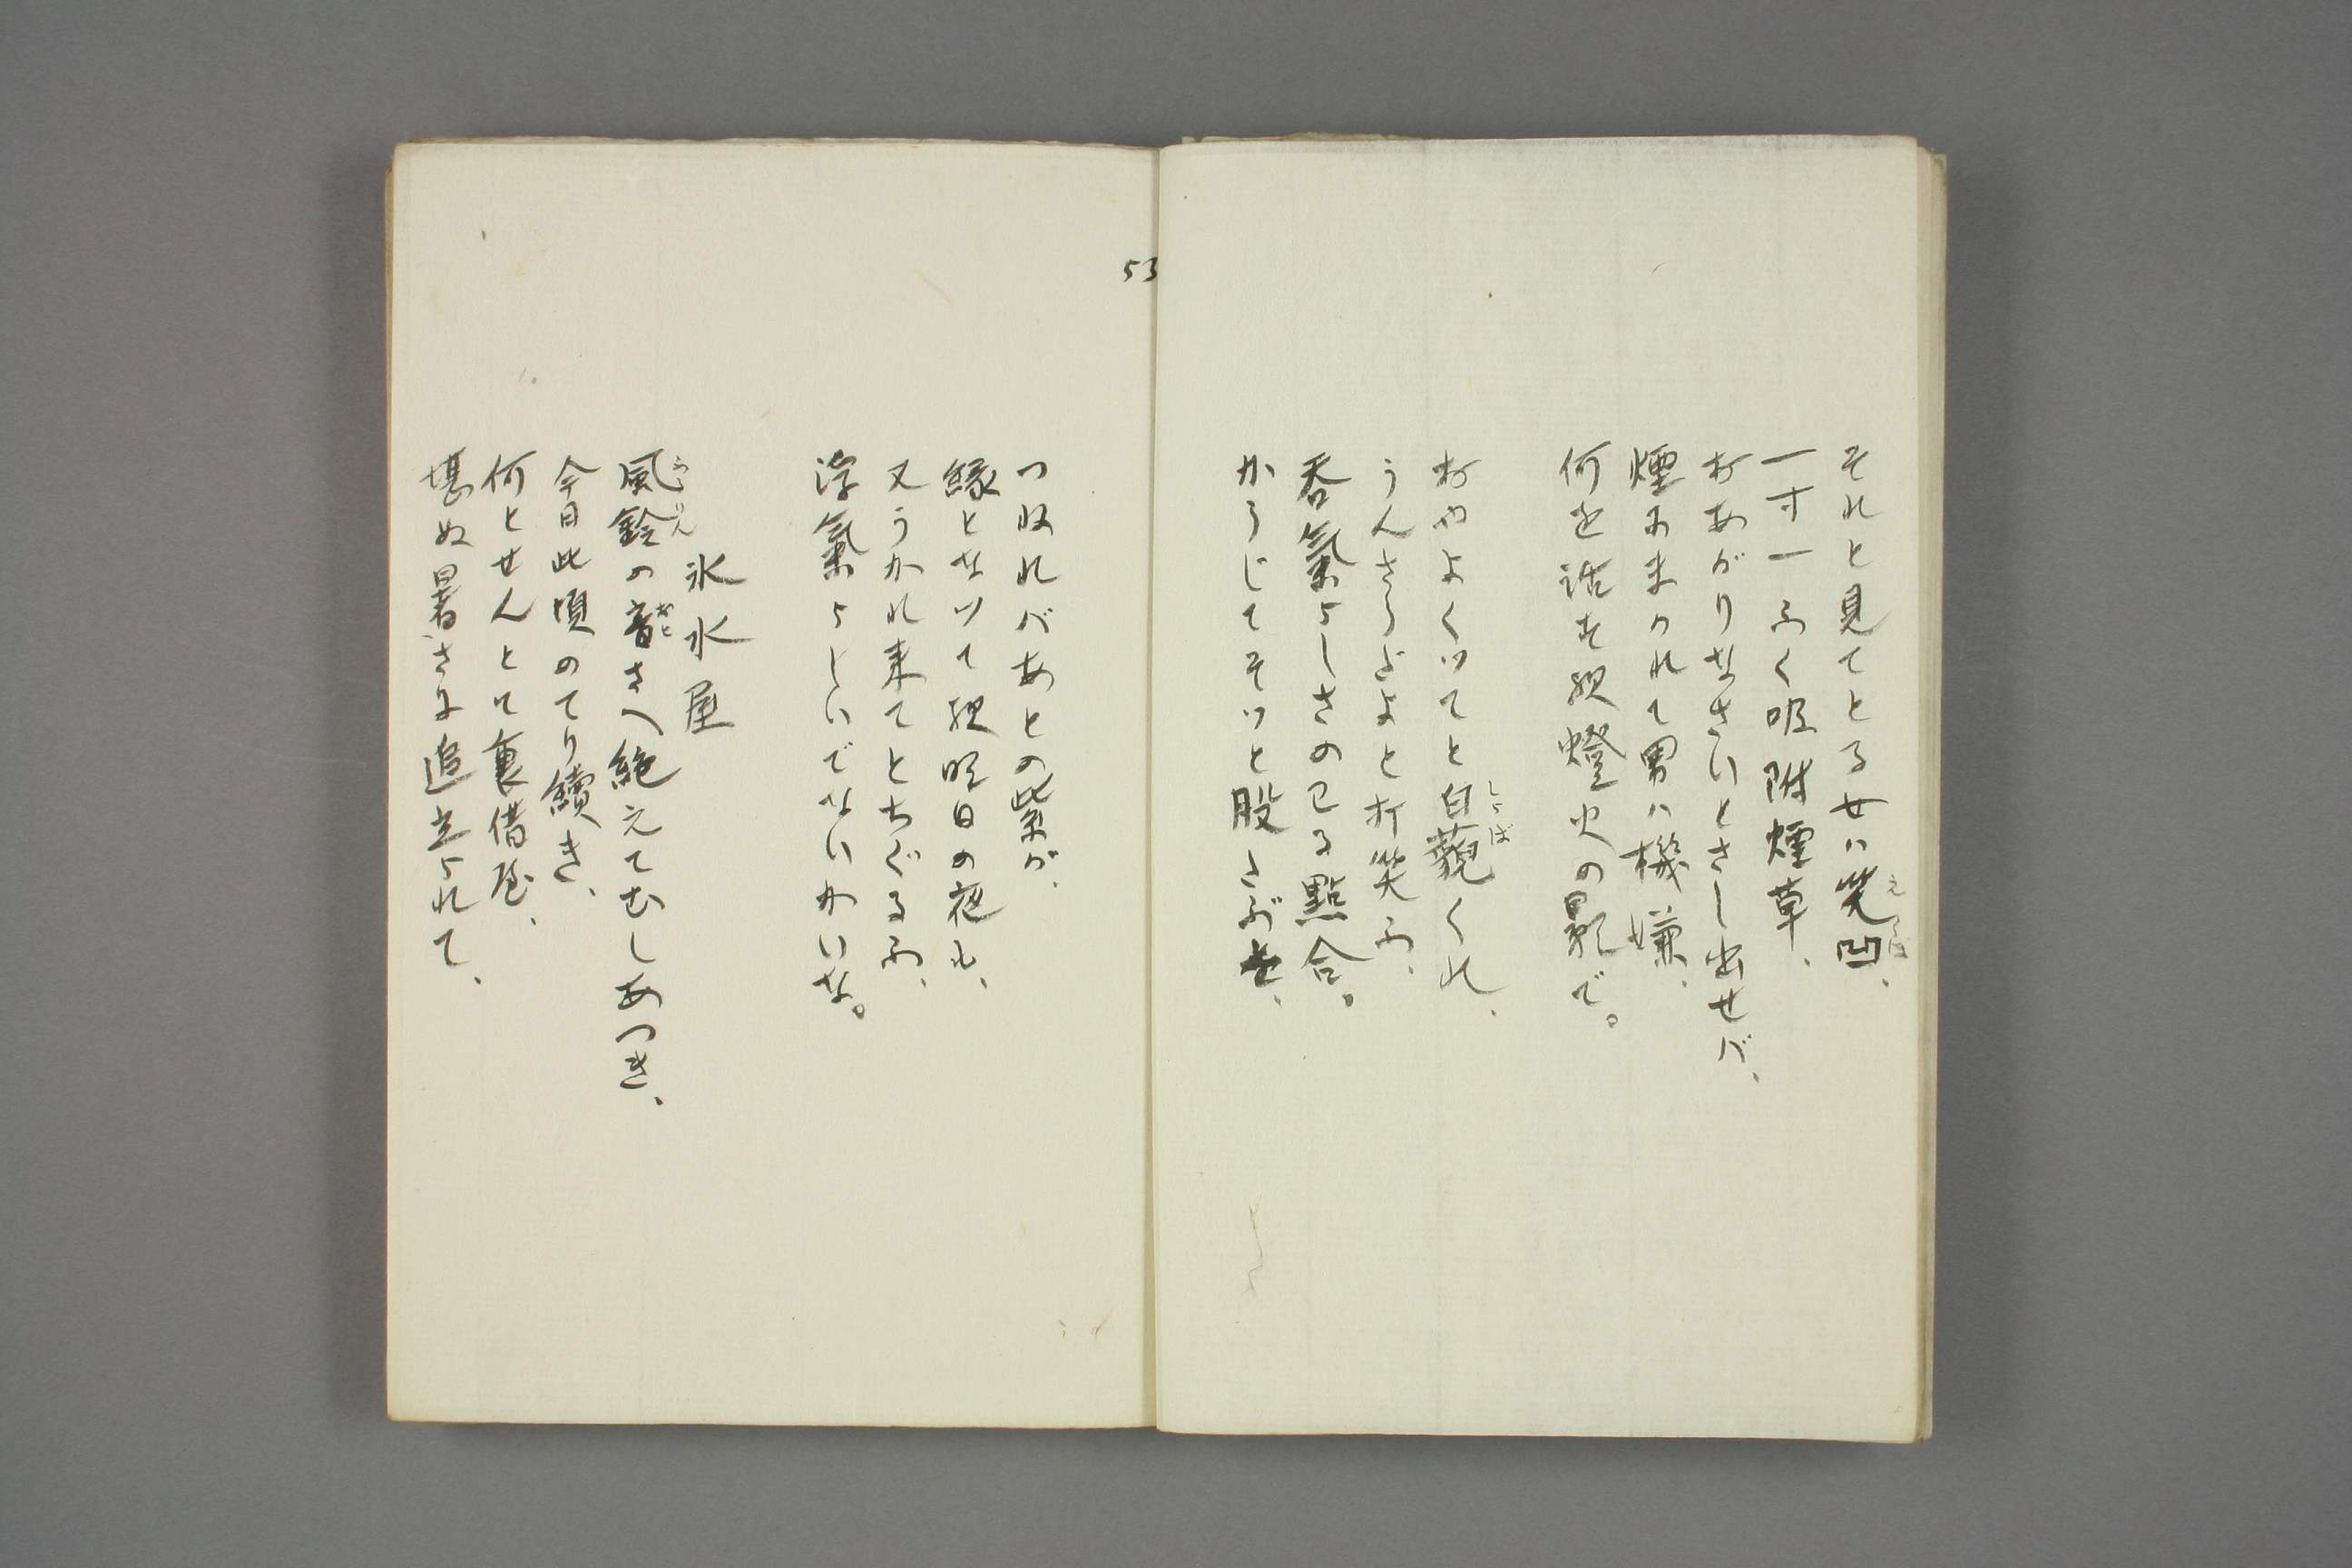 それと見てとる女ハ笑凹、
えくぼ
一寸一ふく吸附煙草、
おあがりなさいとさし出せバ、
煙にまかれて男ハ機嫌、
何を話す現燈火の影で。
おやよくッてと白藐くれ、
しらば
うんさうだよと打笑ふ、
呑氣らしさの已る點合。
かうじてそッと股たぶを、
53
つねれバあとの紫が、
縁となッて現明日の夜も、
又うかれ来てとちぐるふ、
浮氣らしいでないかいな。
氷水屋
風鈴の音さへ絶えてむしあつき、
ふうりん
おと
今日此頃のてり續き、
何とせんとて裏借屋、
堪ぬ暑さに追立られて、